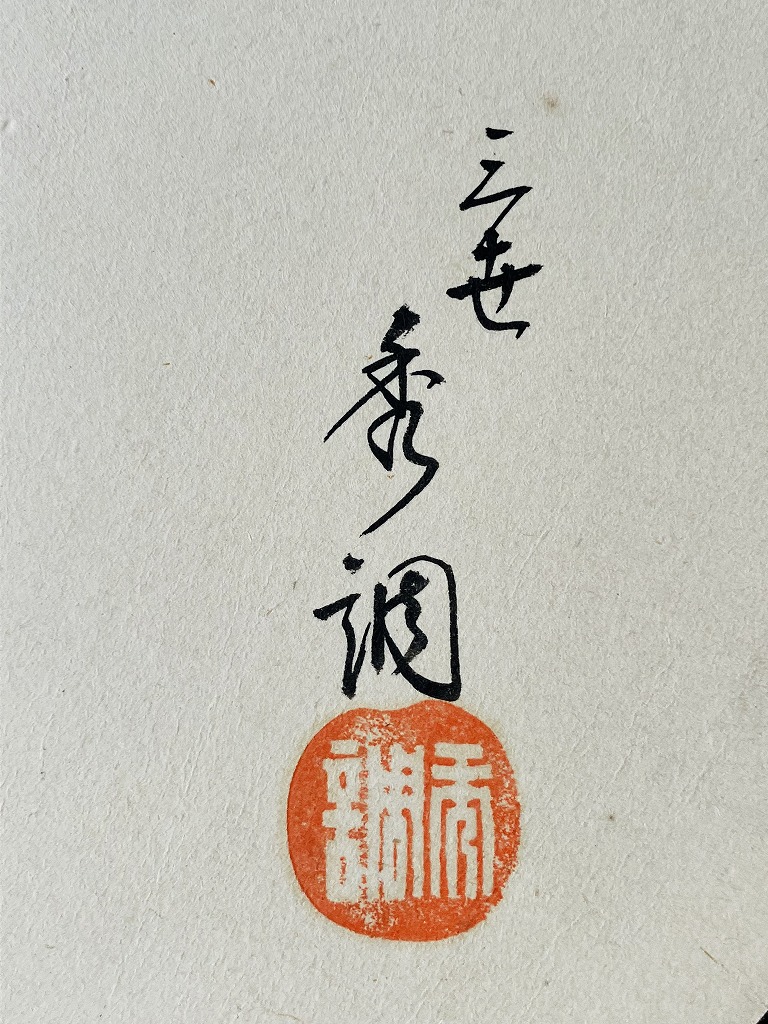 三世
秀調
秀調